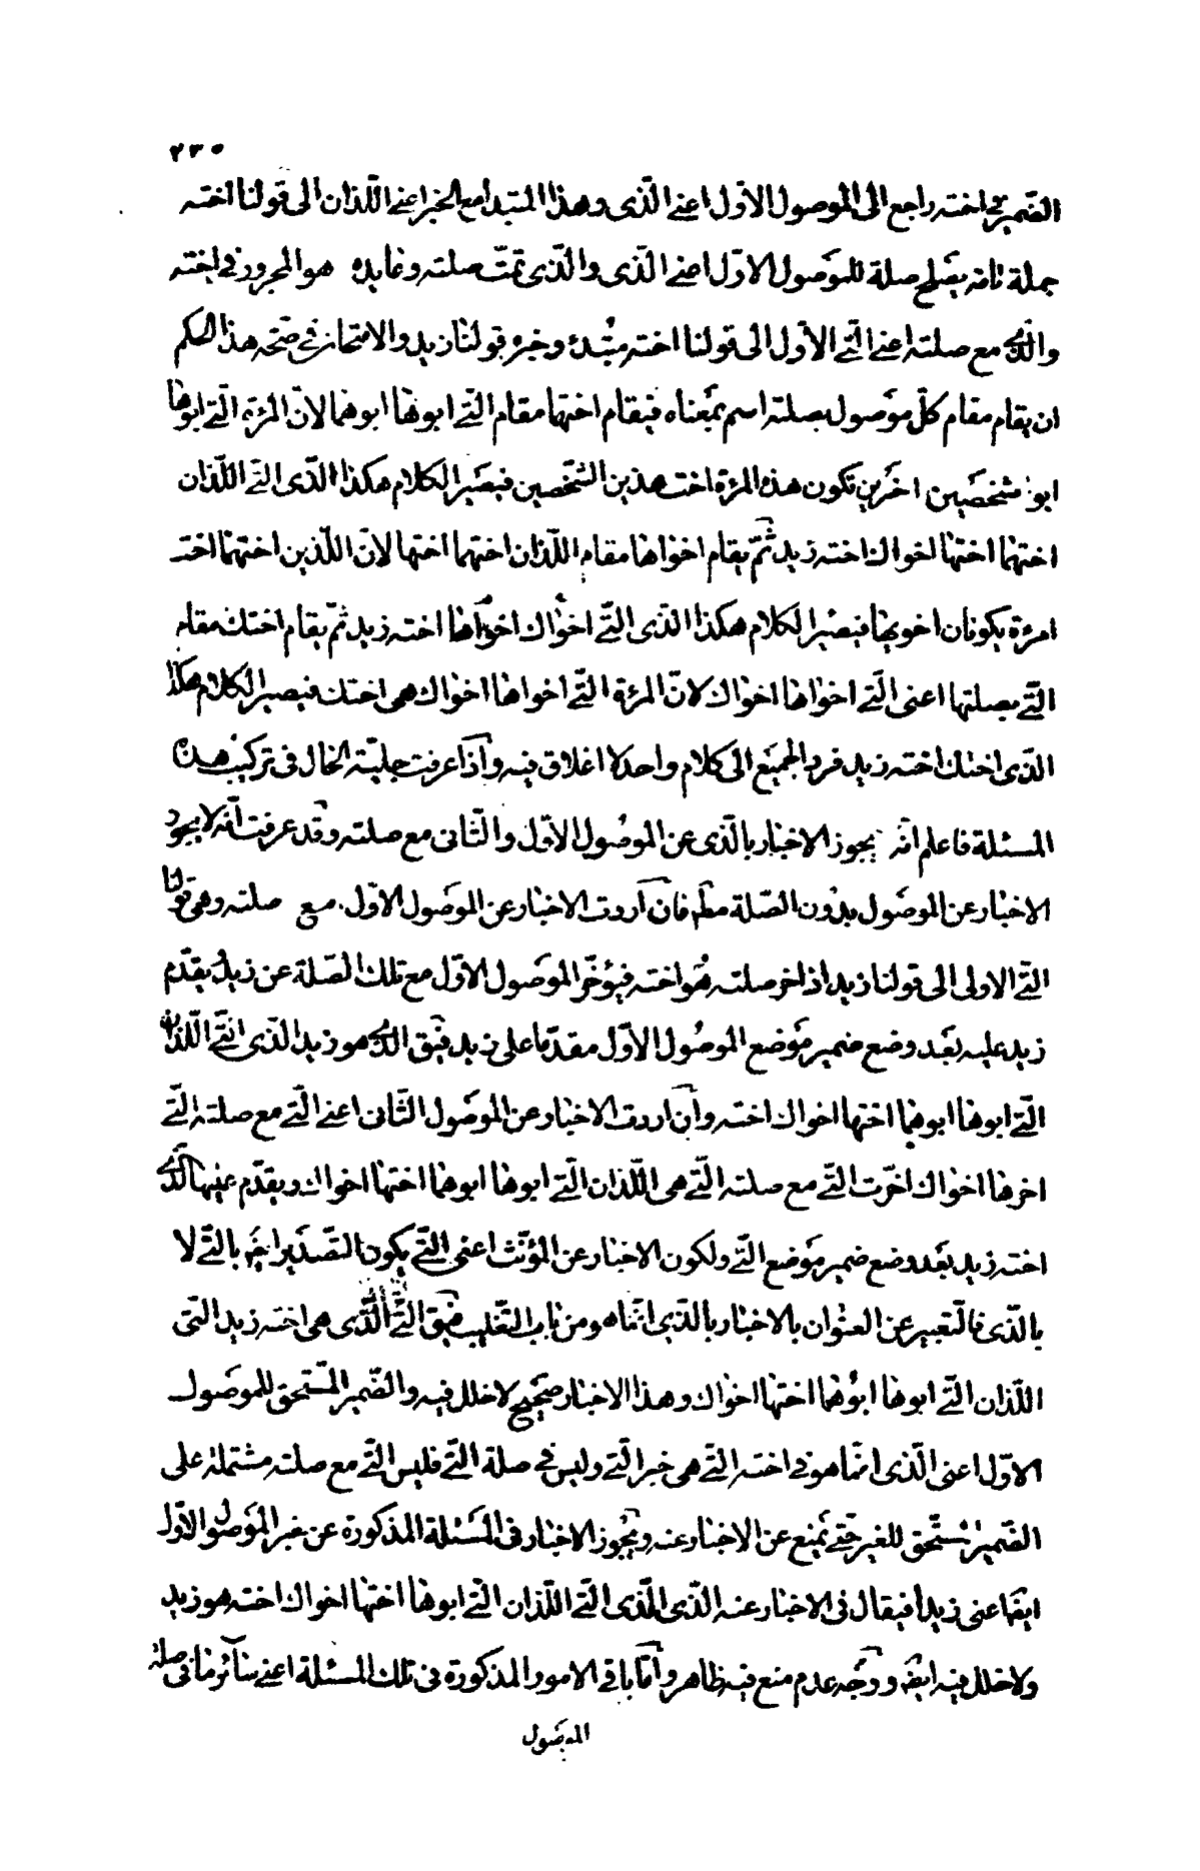 ٢٣٥
الضمير في اخته راجع الى الموصول الاوّل اعنى الّذى وهذا المبتدا مع الخبر اعنى اللّذان الى قولنا اخته
جملة تامّه يصلح صلة للموصول الاوّل اعنى الّذى والّذى تمّت صلته وعايده هو المجرور فى اخته
والّذى مع صلته اعنى الّتى الاوّل الى قولنا اخته مبتدء وخبره قولنا زيد والامتحان فى صحّه هذا الحكم
ان يقام مقام كلّ موصول بصلته اسم بمعناه فيقام اختهما مقام الّتى ابوها ابوهما لانّ المرئة الّتى ابوها
ابو شخصين اخرين تكون هذه المرئة اخت هذين الشّخصين فيصير الكلام هكذا الّذى الّتى اللّذان
اختهما اختها اخواك اخته زيد ثمّ يقام اخواها مقام اللّذان اختهما اختها لانّ اللّذين اختهما اخت
امرئة يكونان اخويها فيصير الكلام هكذا الّذى الّتى اخواك اخواها اخته زيد ثمّ يقام اختك مقام
الّتى بصلتها اعنى الّتى اخواها اخواك لانّ المرئة الّتى اخواها اخواك هى اختك فيصير الكلام هكذا
الّذى اختك اخته زيد فردّ الجميع الى كلام واحد لا اغلاق فيه واذا عرفت جليّة الحال فى تركيب هذه
المسئلة فاعلم انّه يجوز الاخبار بالّذى عن الموصول الاوّل والثّانى مع صلته وقد عرفت انّه لا يجوز
الاخبار عن الموصول بدون الصّلة مطم فان اردت الاخبار عن الموصول الاوّل مع صلته وهى قولنا
الّتى الاولى الى قولنا زيد اذ اخر صلته هو اخته فيؤخّر الموصول الاوّل مع تلك الصّلة عن زيد يقدّم
زيد عليه بعد وضع ضمير موضع الموصول الاوّل مقدّما على زيد فيق الّذى هو زيد الّذى الّتى اللّذان
الّتى ابوها ابوهما اختها اخواك اخته وان اردت الاخبار عن الموصول الثّانى اعنى الّتى مع صلته الّتى
اخرها اخواك اخّرت الّتى مع صلته الّتى هى اللّذان الّتى ابوها ابوهما اختها اخواك ويقدّم عليها الّذى
اخته زيد بعد وضع ضمير موضع الّتى ولكون الاخبار عن المؤنّث اعنى الّتى يكون التّصدير ايضا بالّتى لا
بالّذى فالتعبير عن العنوان بالاخبار بالّذى انّما هو من باب التغليب فيق الّتى الّذى هى اخته زيد الّتى
اللّذان الّتى ابوها ابوهما اختها اخواك وهذا الاخبار صحيح لا خلل فيه والضّمير المستحق للموصول
الاوّل اعنى الّذى انّما هو فى اخته الّتى هى خبر الّتى وليس فى صلة الّتى فليس الّتى مع صلته مشتملة على
الضّمير مستحق للغير حتى يمنع عن الاخبار عنه ويجوز الاخبار فى المسئلة المذكورة عن خبر الموصول الاوّل
ايضا عنى زيدا فيقال فى الاخبار عنه الّذى الّذى الّتى اللّذان الّتى ابوها اختها اخواك اخته هو زيد
ولا خلل فيه ايضا ووجه عدم منع فيه ظاهر وامّا باقى الامور المذكورة فى تلك المسئلة اعنى سائر ما فى صلة
الموصول